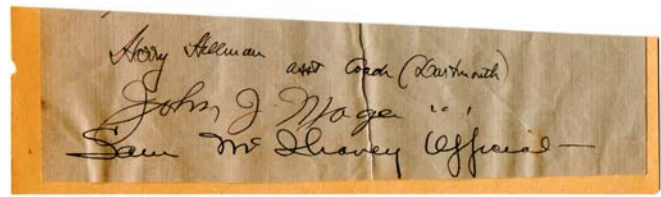 Harry Hillman asst Coach (Dartmouth)
John J Magee " "
Sam Official —